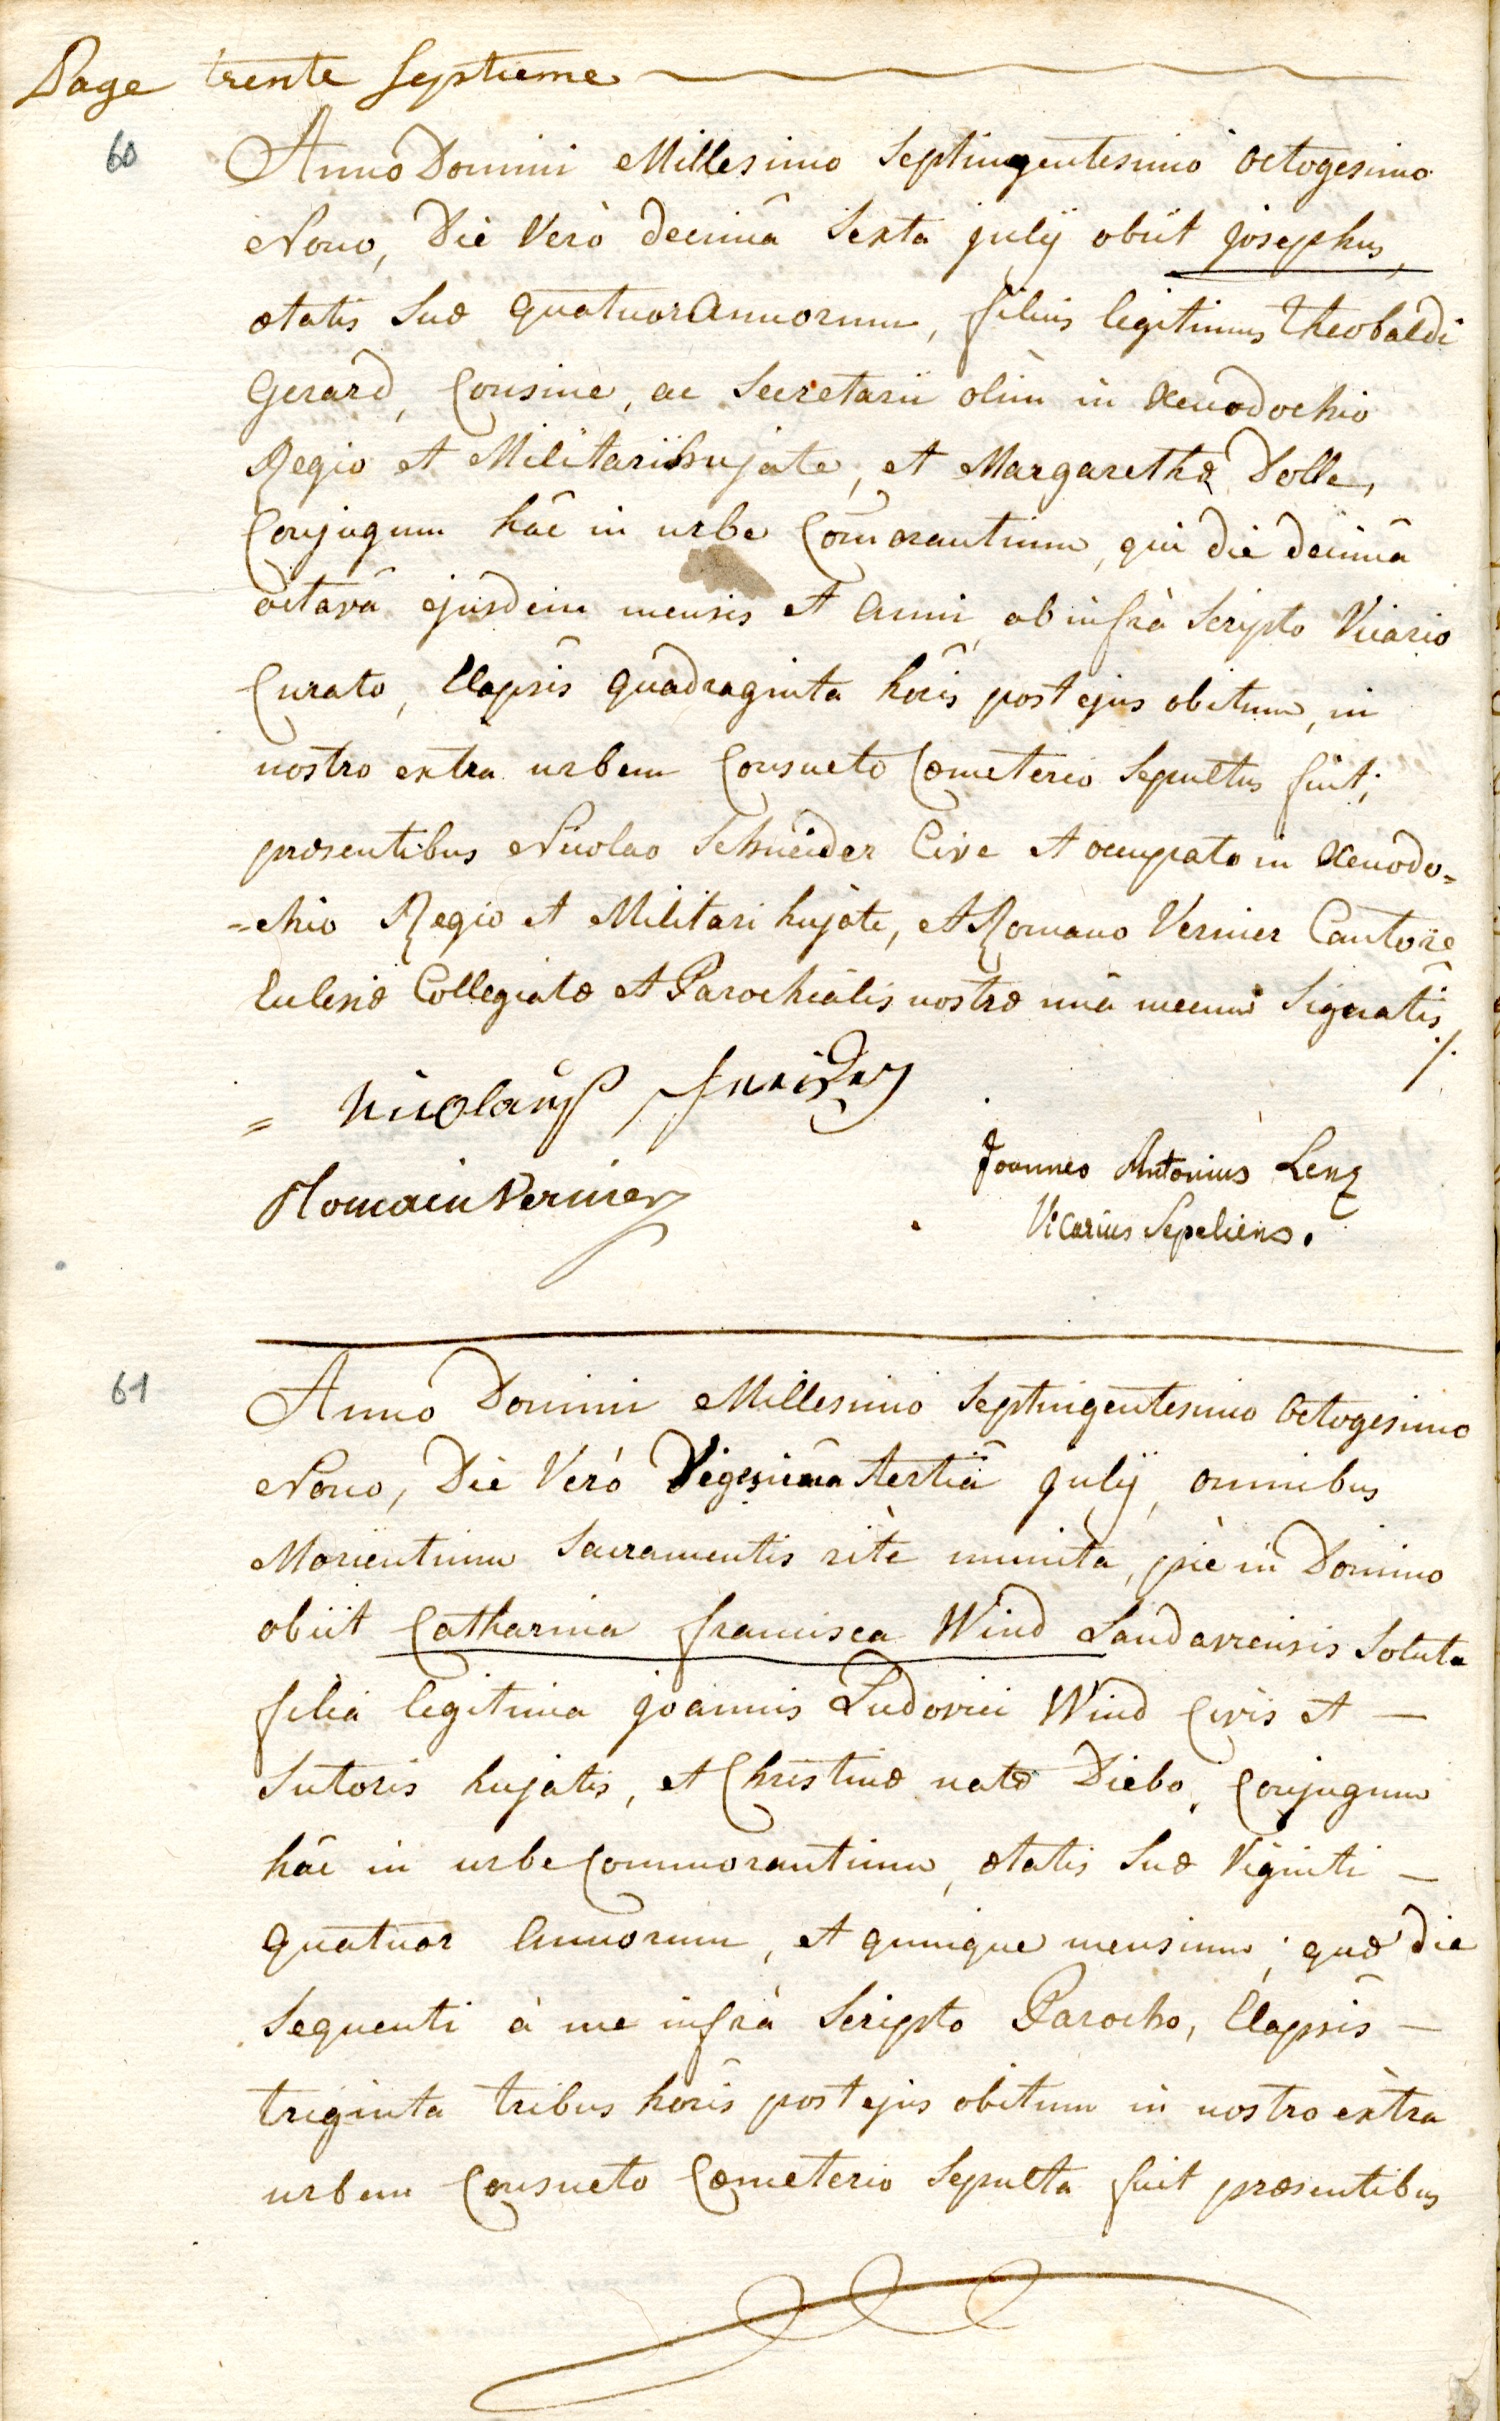 Page trente septieme
60
Anno Domini Millesimo Septingentesimo octogesimo
Nono, Die Verò decimâ Sexta julÿ obiit josephus,
ætatis Suæ quatuor annorum, filius legitimus Theobaldi
Gerard, Consine, ac Secretarii olim in Xenodochio
Regio et Militari hujate, et Margarethæ Dolle,
Conjugum hâc in urbe Com̄orantium, qui die decimâ
octavâ ejusdem mensis et anni, ab infrà Scripto Vicario
Curato, Elapsîs quadraginta horîs post ejus obitum, in
nostro extra urbem Consueto Cœmeterio Sepultus fuit;
præsentibus Nicolao Schneider Cive et occupato in Xenodo=
=chio Regio et Militari hujate, et Romano Vernier Cantore
Eclesiæ Collegiatæ et Parochialis nostræ unâ mecum Signatîs ./.
= Nicolauß Sneider
Romain Vernier
Joannes Antonius Lenz
Vicarius Sepeliens.
61
Anno Domini Millesimo Septingentesimo Octogesimo
Nono, Die Verò Vigesima tertiâ julÿ, omnibus
Morientium Sacramentis ritè munita, piè in Domino
obiit Catharina francisca Wind Landavensis Soluta
filia legitima joannis Ludovici Wind Civis et —
Sutoris hujatis, et Christinæ natæ Diebo, Conjugum
hâc in urbe Commorantium, ætatis Suæ Viginti —
quatuor annorum, et quinque mensium; quæ die
Sequenti à me infrà Scripto Parocho, Elapsîs —
triginta tribus horîs post ejus obitum in nostro extra
urbem Consueto Cœmeterio Sepulta fuit præsentibus